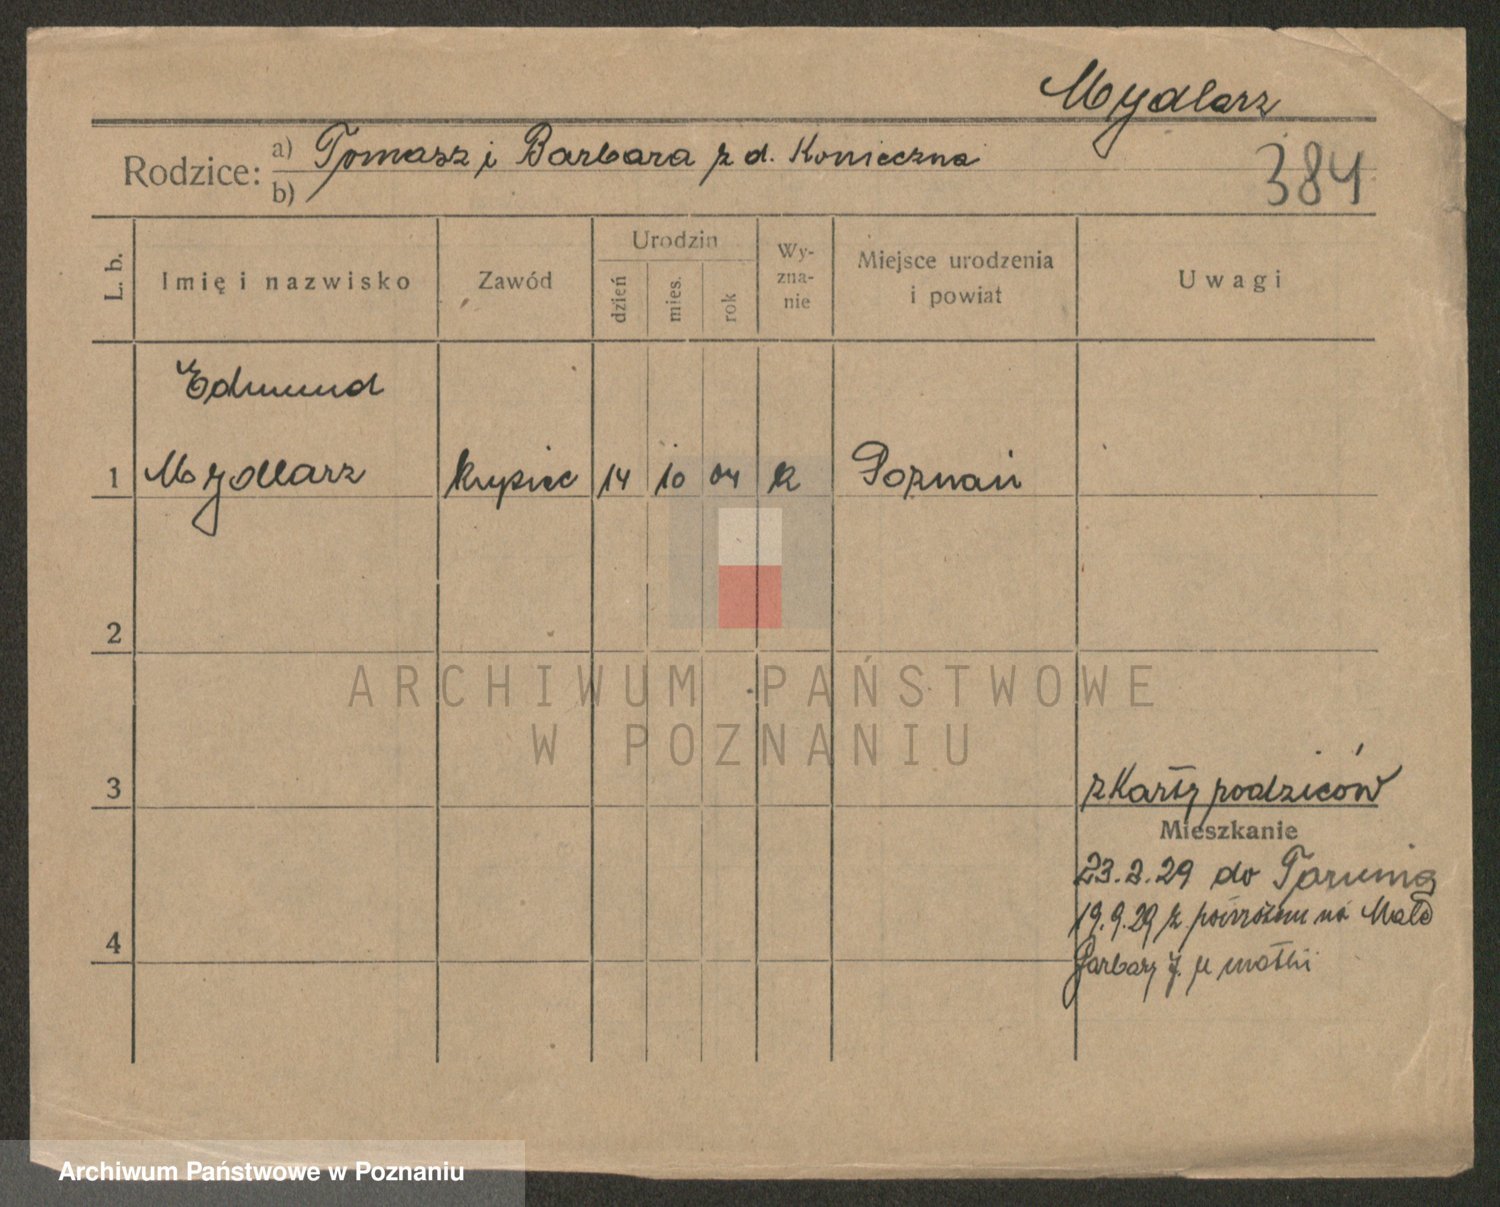 Mydlarz
Rodzice: a) Tomasz i Barbara z d. Konieczna
b)
384
L. b.
Imię i nazwisko
Zawód
Urodzin
dzień
mies.
rok
Wy-
zna-
nie
Miejsce urodzenia
i powiat
Uwagi
Edmund
1 Mydlarz kupiec 14 10 04 k Poznań
2
ARCHIWUM PAŃSTWOWE
W POZNANIU
3
z karty rodziców
Mieszkanie
23.2.29 do Torunia
19.9.29 z powrotem na Małe
4
Garbary 7. u matki
Archiwum Państwowe w Poznaniu